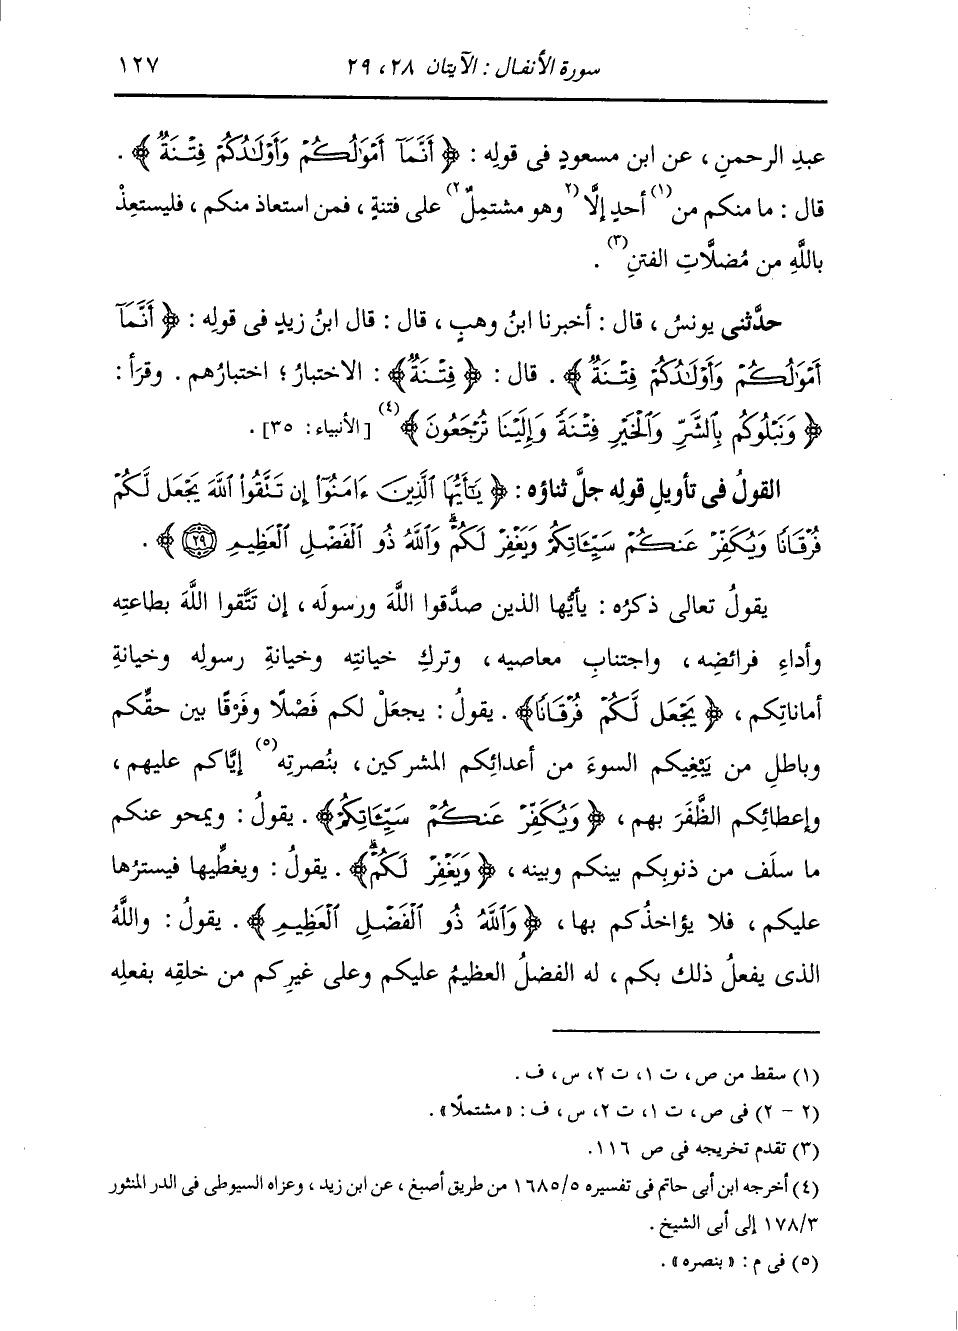 سورة الأنفال : الآيتان ٢٨، ٢٩ ١٢٧
عبدِ الرحمنِ ، عن ابن مسعودٍ فى قولِه : ﴿ أَنَّمَآ أَمْوَٰلُكُمْ وَأَوْلَـٰدُكُمْ فِتْنَةٌ ﴾ .
قال : ما منكم من(١) أحدٍ إلَّا (٢ وهو مشتمِلٌ٢) على فتنةٍ ، فمن استعاذ منكم ، فليستعِذْ
باللَّهِ من مُضلَّاتِ الفتنِ(٣) .
حدَّثنى يونسُ ، قال : أخبرنا ابنُ وهبٍ ، قال : قال ابنُ زيدٍ فى قولِه : ﴿ أَنَّمَآ
أَمْوَٰلُكُمْ وَأَوْلَـٰدُكُمْ فِتْنَةٌ ﴾ . قال : ﴿ فِتْنَةٌ ﴾ : الاختبارُ ؛ اختبارُهم . وقرَأ :
﴿ وَنَبْلُوكُم بِٱلشَّرِّ وَٱلْخَيْرِ فِتْنَةً وَإِلَيْنَا تُرْجَعُونَ ﴾(٤) [الأنبياء: ٣٥] .
القولُ فى تأويلِ قولِه جلَّ ثناؤه : ﴿ يَـٰٓأَيُّهَا ٱلَّذِينَ ءَامَنُوٓا۟ إِن تَتَّقُوا۟ ٱللَّهَ يَجْعَل لَّكُمْ
فُرْقَانًا وَيُكَفِّرْ عَنكُمْ سَيِّـَٔاتِكُمْ وَيَغْفِرْ لَكُمْ ۗ وَٱللَّهُ ذُو ٱلْفَضْلِ ٱلْعَظِيمِ ٢٩ ﴾ .
يقولُ تعالى ذكرُه : يأيُّها الذين صدَّقوا اللَّهَ ورسولَه ، إن تَتَّقوا اللَّهَ بطاعتِه
وأداءِ فرائضِه ، واجتنابِ معاصيه ، وتركِ خيانتِه وخيانةِ رسولِه وخيانةِ
أماناتِكم ، ﴿ يَجْعَل لَّكُمْ فُرْقَانًا ﴾ . يقولُ : يجعَلْ لكم فَصْلًا وفَرْقًا بين حقِّكم
وباطلِ من يَبْغِيكم السوءَ من أعدائِكم المشركين ، بنُصرتِه(٥) إيَّاكم عليهم ،
وإعطائِكم الظَّفَرَ بهم ، ﴿ وَيُكَفِّرْ عَنكُمْ سَيِّـَٔاتِكُمْ ﴾ . يقولُ : ويمحو عنكم
ما سلَف من ذنوبِكم بينكم وبينه ، ﴿ وَيَغْفِرْ لَكُمْ ۗ ﴾ . يقولُ : ويغطِّيها فيسترُها
عليكم ، فلا يؤاخذُكم بها ، ﴿ وَٱللَّهُ ذُو ٱلْفَضْلِ ٱلْعَظِيمِ ﴾ . يقولُ : واللَّهُ
الذى يفعلُ ذلك بكم ، له الفضلُ العظيمُ عليكم وعلى غيرِكم من خلقِه بفعلِه
(١) سقط من ص ، ت ١، ت ٢، س ، ف .
(٢ - ٢) فى ص ، ت ١، ت ٢، س ، ف : « مشتملًا » .
(٣) تقدم تخريجه فى ص ١١٦.
(٤) أخرجه ابن أبى حاتم فى تفسيره ١٦٨٥/٥ من طريق أصبغ ، عن ابن زيد ، وعزاه السيوطى فى الدر المنثور
١٧٨/٣ إلى أبى الشيخ .
(٥) فى م : « بنصره » .